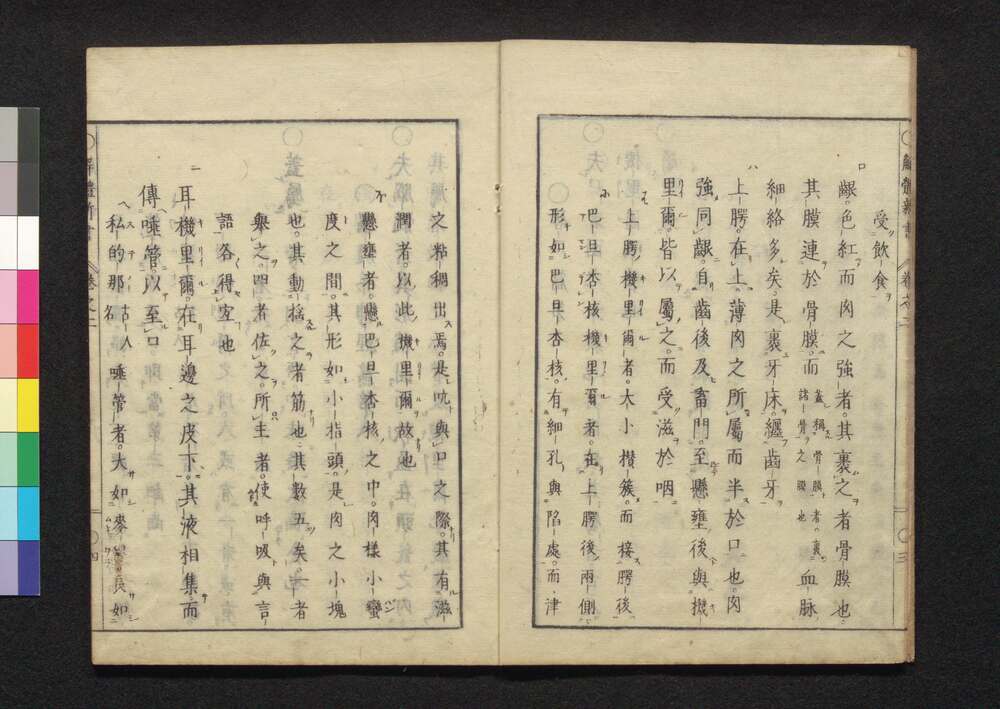 解體新書 卷之二 ○三
受飲食
ロ 齦。色紅而肉之強者。其裹之者骨膜也
其膜連於骨膜。而蓋稱骨膜者。裹諸骨之膜也血脉
細絡多矣。是裹牙床。纒齒牙
ハ 上腭。在上薄肉之所屬而半於口也。肉
強同齦。自齒後及畜門。至懸壅後。與機
里爾。皆以屬之。而受滋於咽
上腭機里爾者。大小攅簇。而接腭後
巴旦杏核機里爾者。在上腭後兩側
形如巴旦杏核。有細孔。與陷處。而津
之粘稠出焉。是吭與口之際。其有滋
潤者。以此機里爾故也
懸壅者。懸巴旦杏核之中。肉樣小臠
度之間。其形如小指頭。是肉之小塊
也。其動搖之者筋也。其數五矣。一者
舉之。四者佐之。所主者。使呼吸與言
語各得宜也
ニ 耳機里爾。在耳邊之皮下。其液相集而
傳唾管。以至口
私的那古人名唾管者。大如麥 長如
解體新書 卷之二 ○四